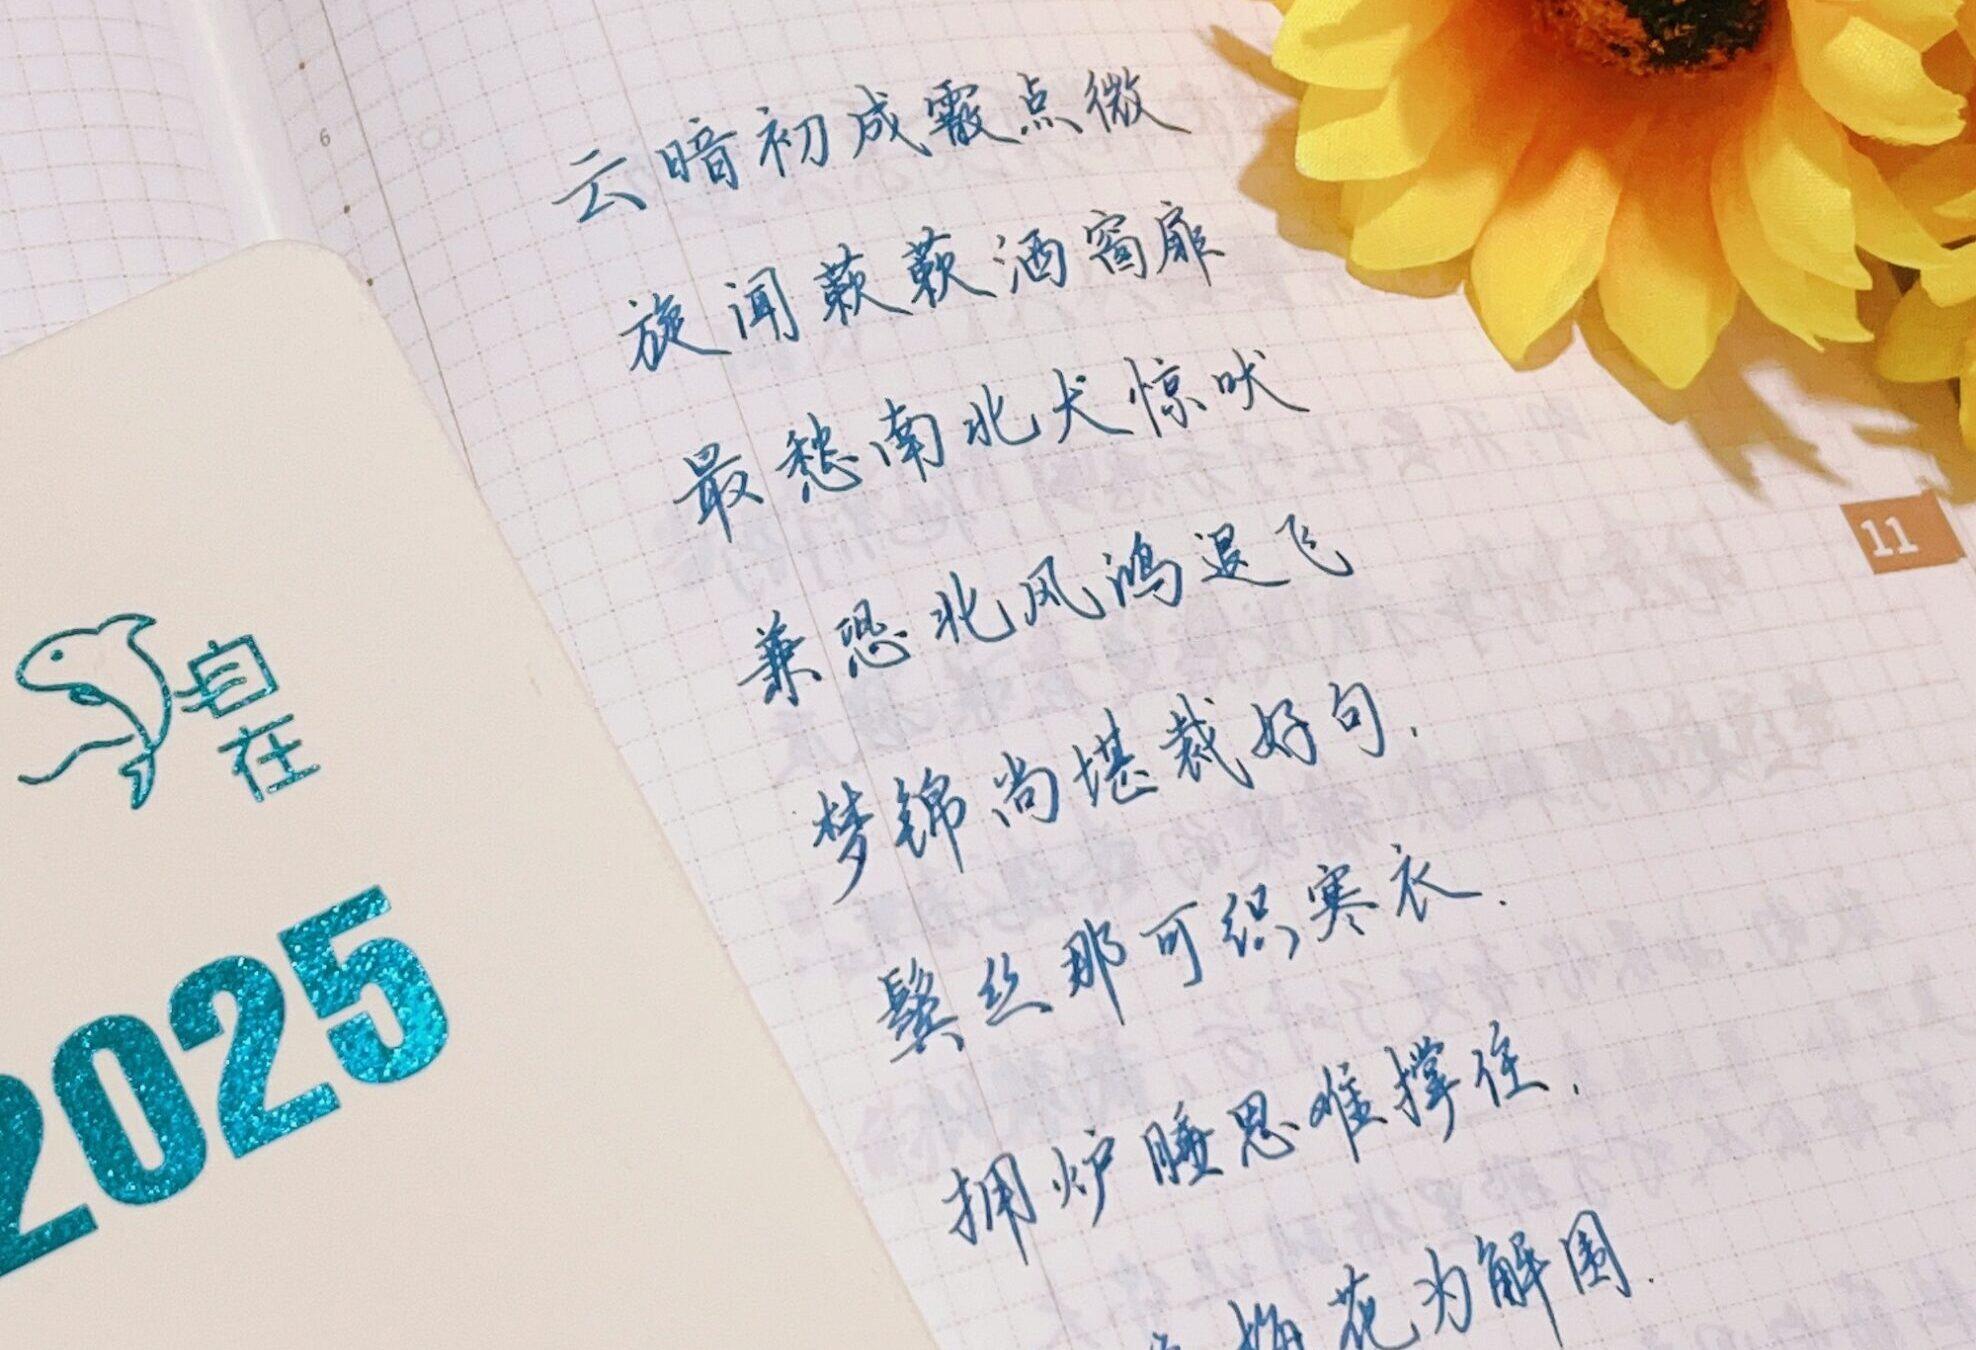 6
云暗初成霰点微
旋闻蔌蔌洒窗扉
最愁南北犬惊吠
兼恐北风鸿退飞
梦锦尚堪裁好句.
鬓丝那可织寒衣.
拥炉睡思难撑住.
梅花为解围.
11
自在
2025